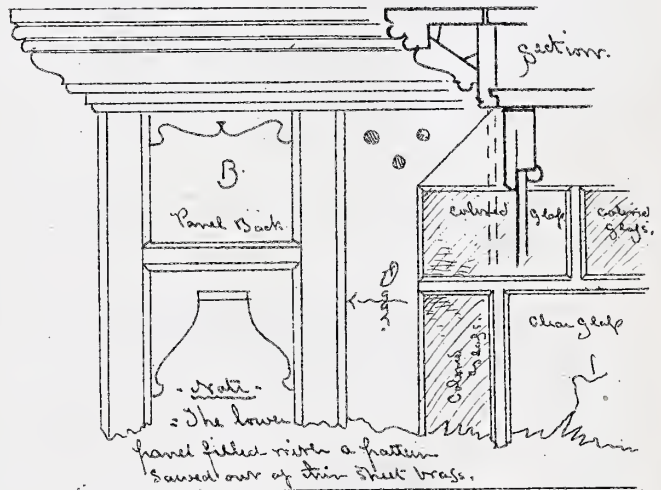 Section.
B.
Panel Back.
Colored glass
Colored
glass.
Colored
glass.
Clear glass
- Note -
= The lower
panel filled with a pattern
sawed out of thin sheet brass.